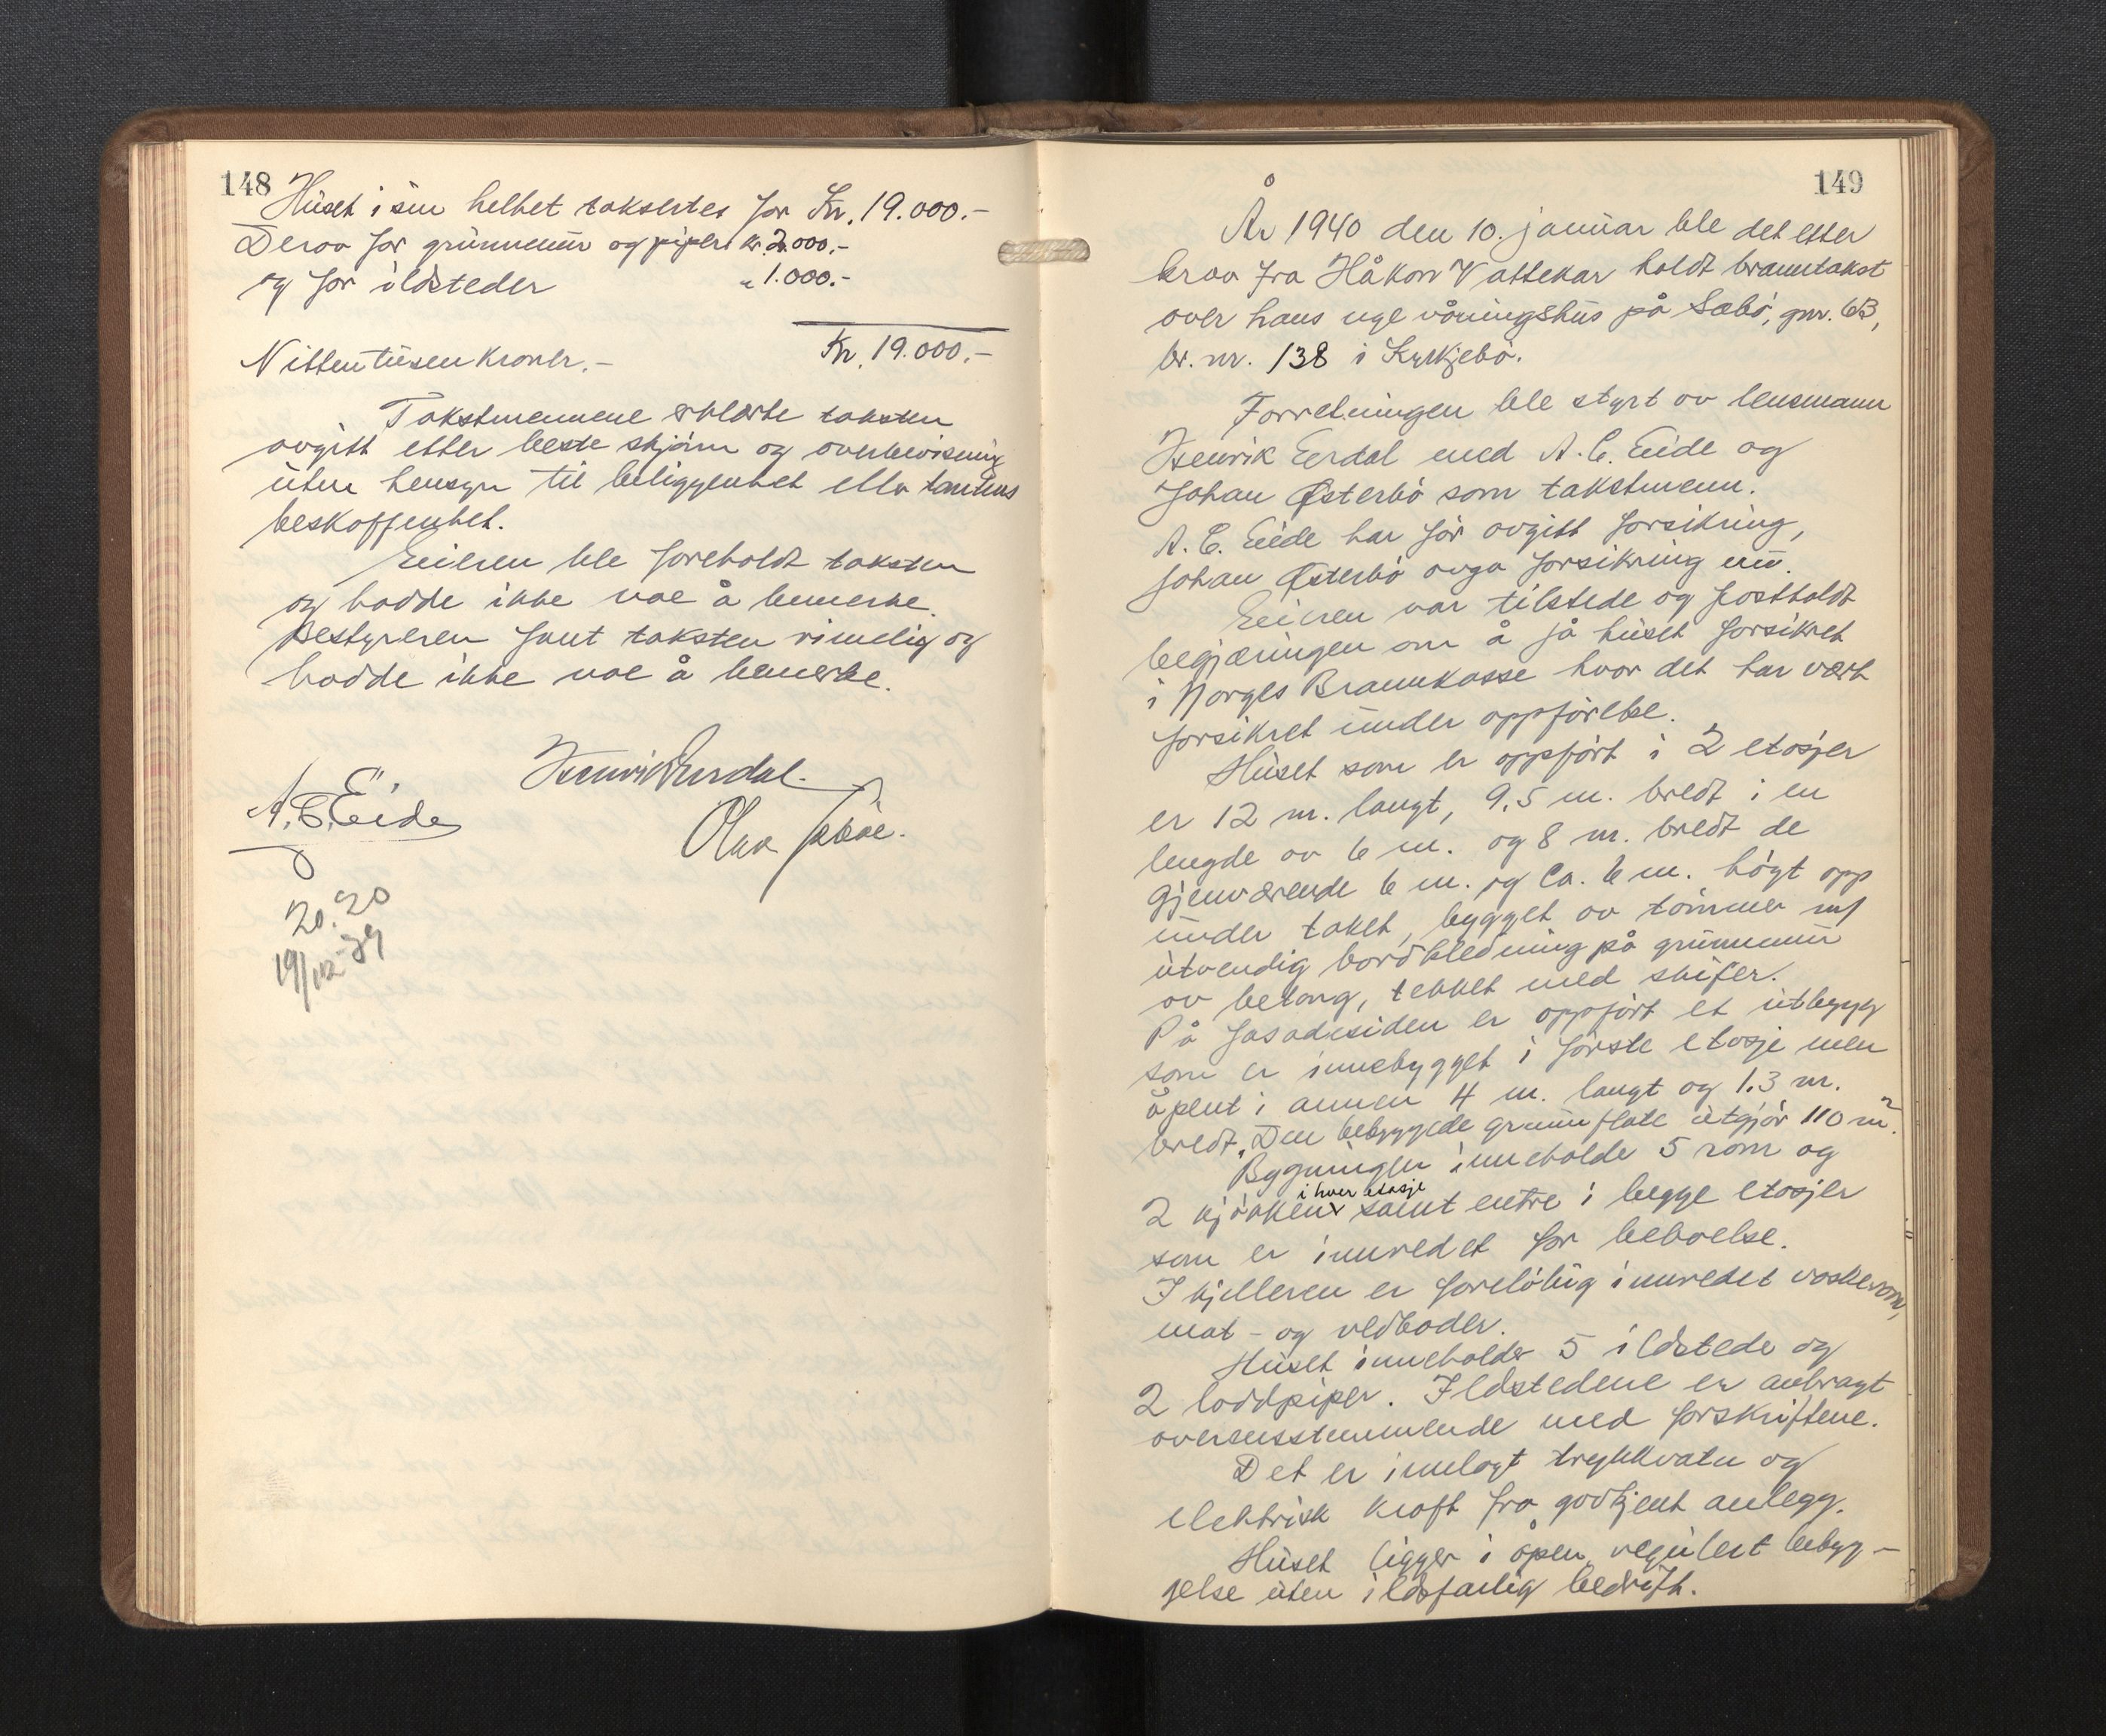 148
Huset i sin helhet taksertes for Kr. 19.000.-
Derav for grunnmur og piper kr. 2.000.-
og for ildsteder " 1.000.-
Nittentusen kroner.- Kr. 19.000.-
Takstmennene erklærte taksten
avgitt etter beste skjønn og overbevisning
uten hensyn til beliggenhet eller tomtens
beskaffenhet.
Eieren ble foreholdt taksten
og hadde ikke noe å bemerke.
Bestyreren fant taksten rimelig og
hadde ikke noe å bemerke.
Henrik Eerdal.
A. E. Eide
Olav
20.20
19/12-39
149
År 1940 den 10. januar ble det etter
krav fra Håkon Vattekar holdt branntakst
over hans nye våningshus på Sæbø, gnr. 63,
br. nr. 138 i Kyrkjebø.
Forretningen ble styrt av lensmann
Henrik Eerdal med A. E. Eide og
Johan Østerbø som takstmenn.
A. E. Eide har før avgitt forsikring,
Johan Østerbø avga forsikring nu.
Eieren var tilstede og fastholdt
begjæringen om å få huset forsikret
i Norges Brannkasse hvor det har vært
forsikret under oppførelse.
Huset som er oppført i 2 etasjer
er 12 m. langt, 9,5 m. bredt i en
lengde av 6 m. og 8 m. bredt de
gjenværende 6 m. og ca. 6 m. høgt opp
under taket, bygget av tømmer m/
utvendig bordkledning på grunnmur
av betong, tekket med skifer.
På fasadesiden er oppført et utbygg
som er innebygget i første etasje men
åpent i annen 4 m. langt og 1.3 m.
bredt. Den bebyggede grunnflate utgjør 110 m².
Bygningen inneholde 5 rom og
i hver etasje
2 kjøkken samt entre i begge etasjer
som er innredet for beboelse.
I kjelleren er foreløbig innredet vaskerom,
mat- og vedboder.
Huset inneholder 5 ildstede og
2 loddpiper. Ildstedene er anbragt
overensstemmende med forskriftene.
Det er innlagt trykkvatn og
elektrisk kraft fra godkjent anlegg.
Huset ligger i åpen, regulert bebyg-
gelse uten ildsfarlig bedrift.